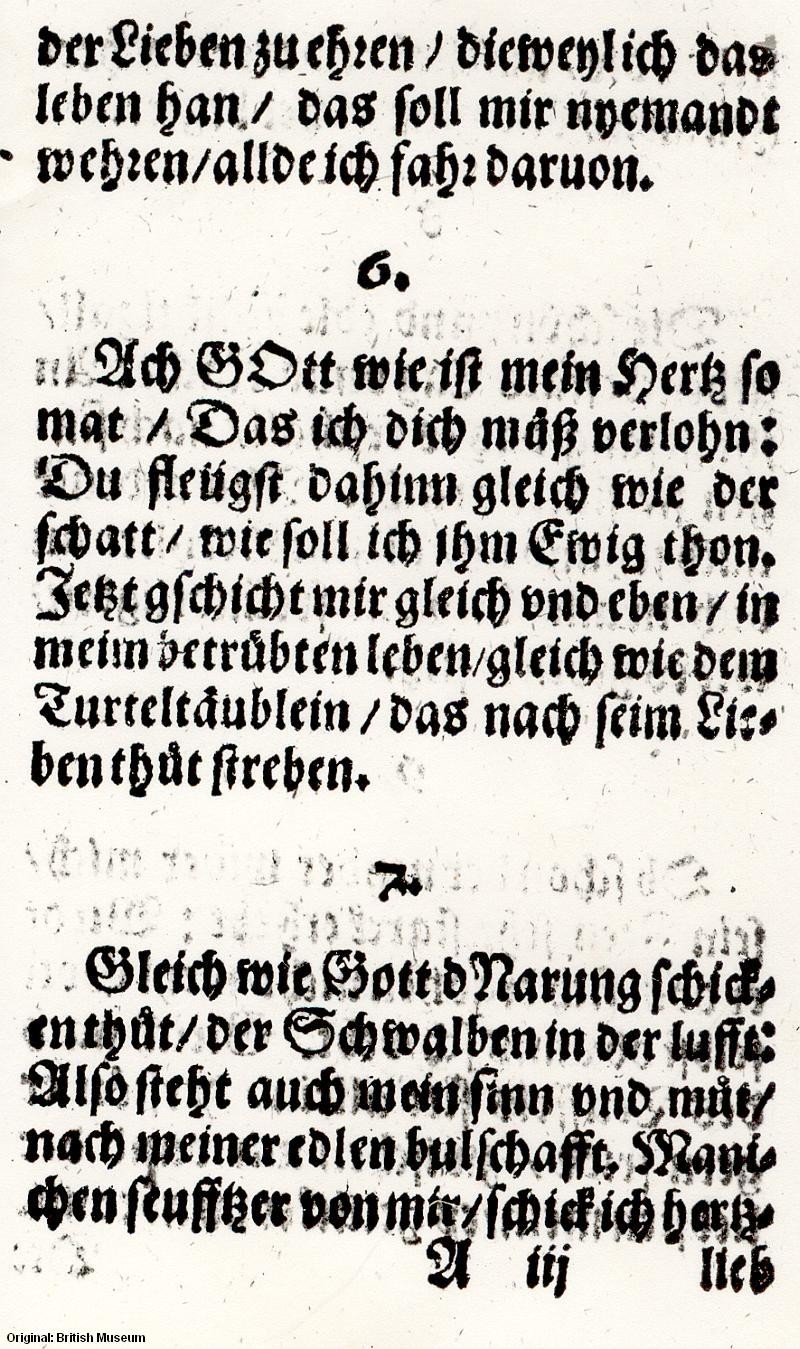 der Lieben zu ehren / dieweyl ich das
leben han / das soll mir nyemandt
wehren / allde ich fahr daruon.
6.
Ach GOtt wie ist mein Hertz so
mat / Das ich dich můß verlohn:
Du fleügst dahinn gleich wie der
schatt / wie soll ich jhm Ewig thon.
Jetzt gschicht mir gleich vnd eben / in
meim betrůbten leben / gleich wie dem
Turteltäublein / das nach seim Lie-
ben thůt streben.
7.
Gleich wie Gott d Narung schick-
en thůt / der Schwalben in der lufft:
Also steht auch mein sinn vnd můt /
nach meiner edlen bulschafft. Mani-
chen seufftzer von mir / schick ich hertz-
A iij lieb
Original: British Museum